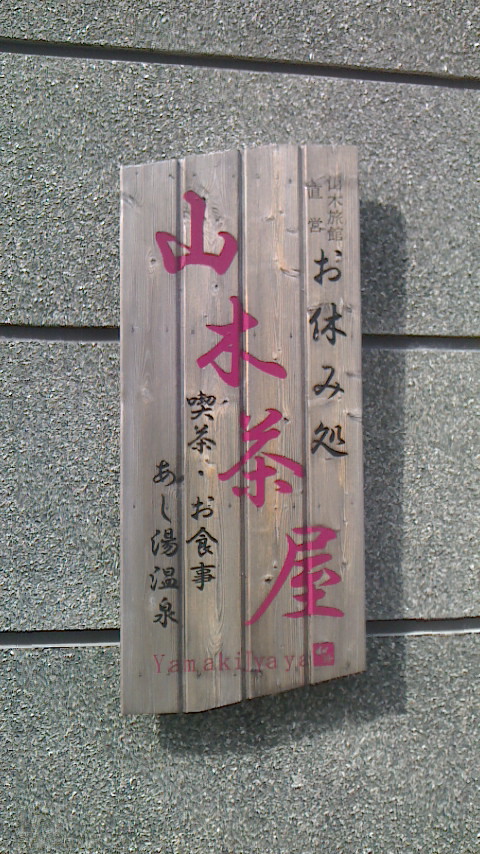 山木旅館
直営
お休み処
山木茶屋
喫茶・お食事
あし湯温泉